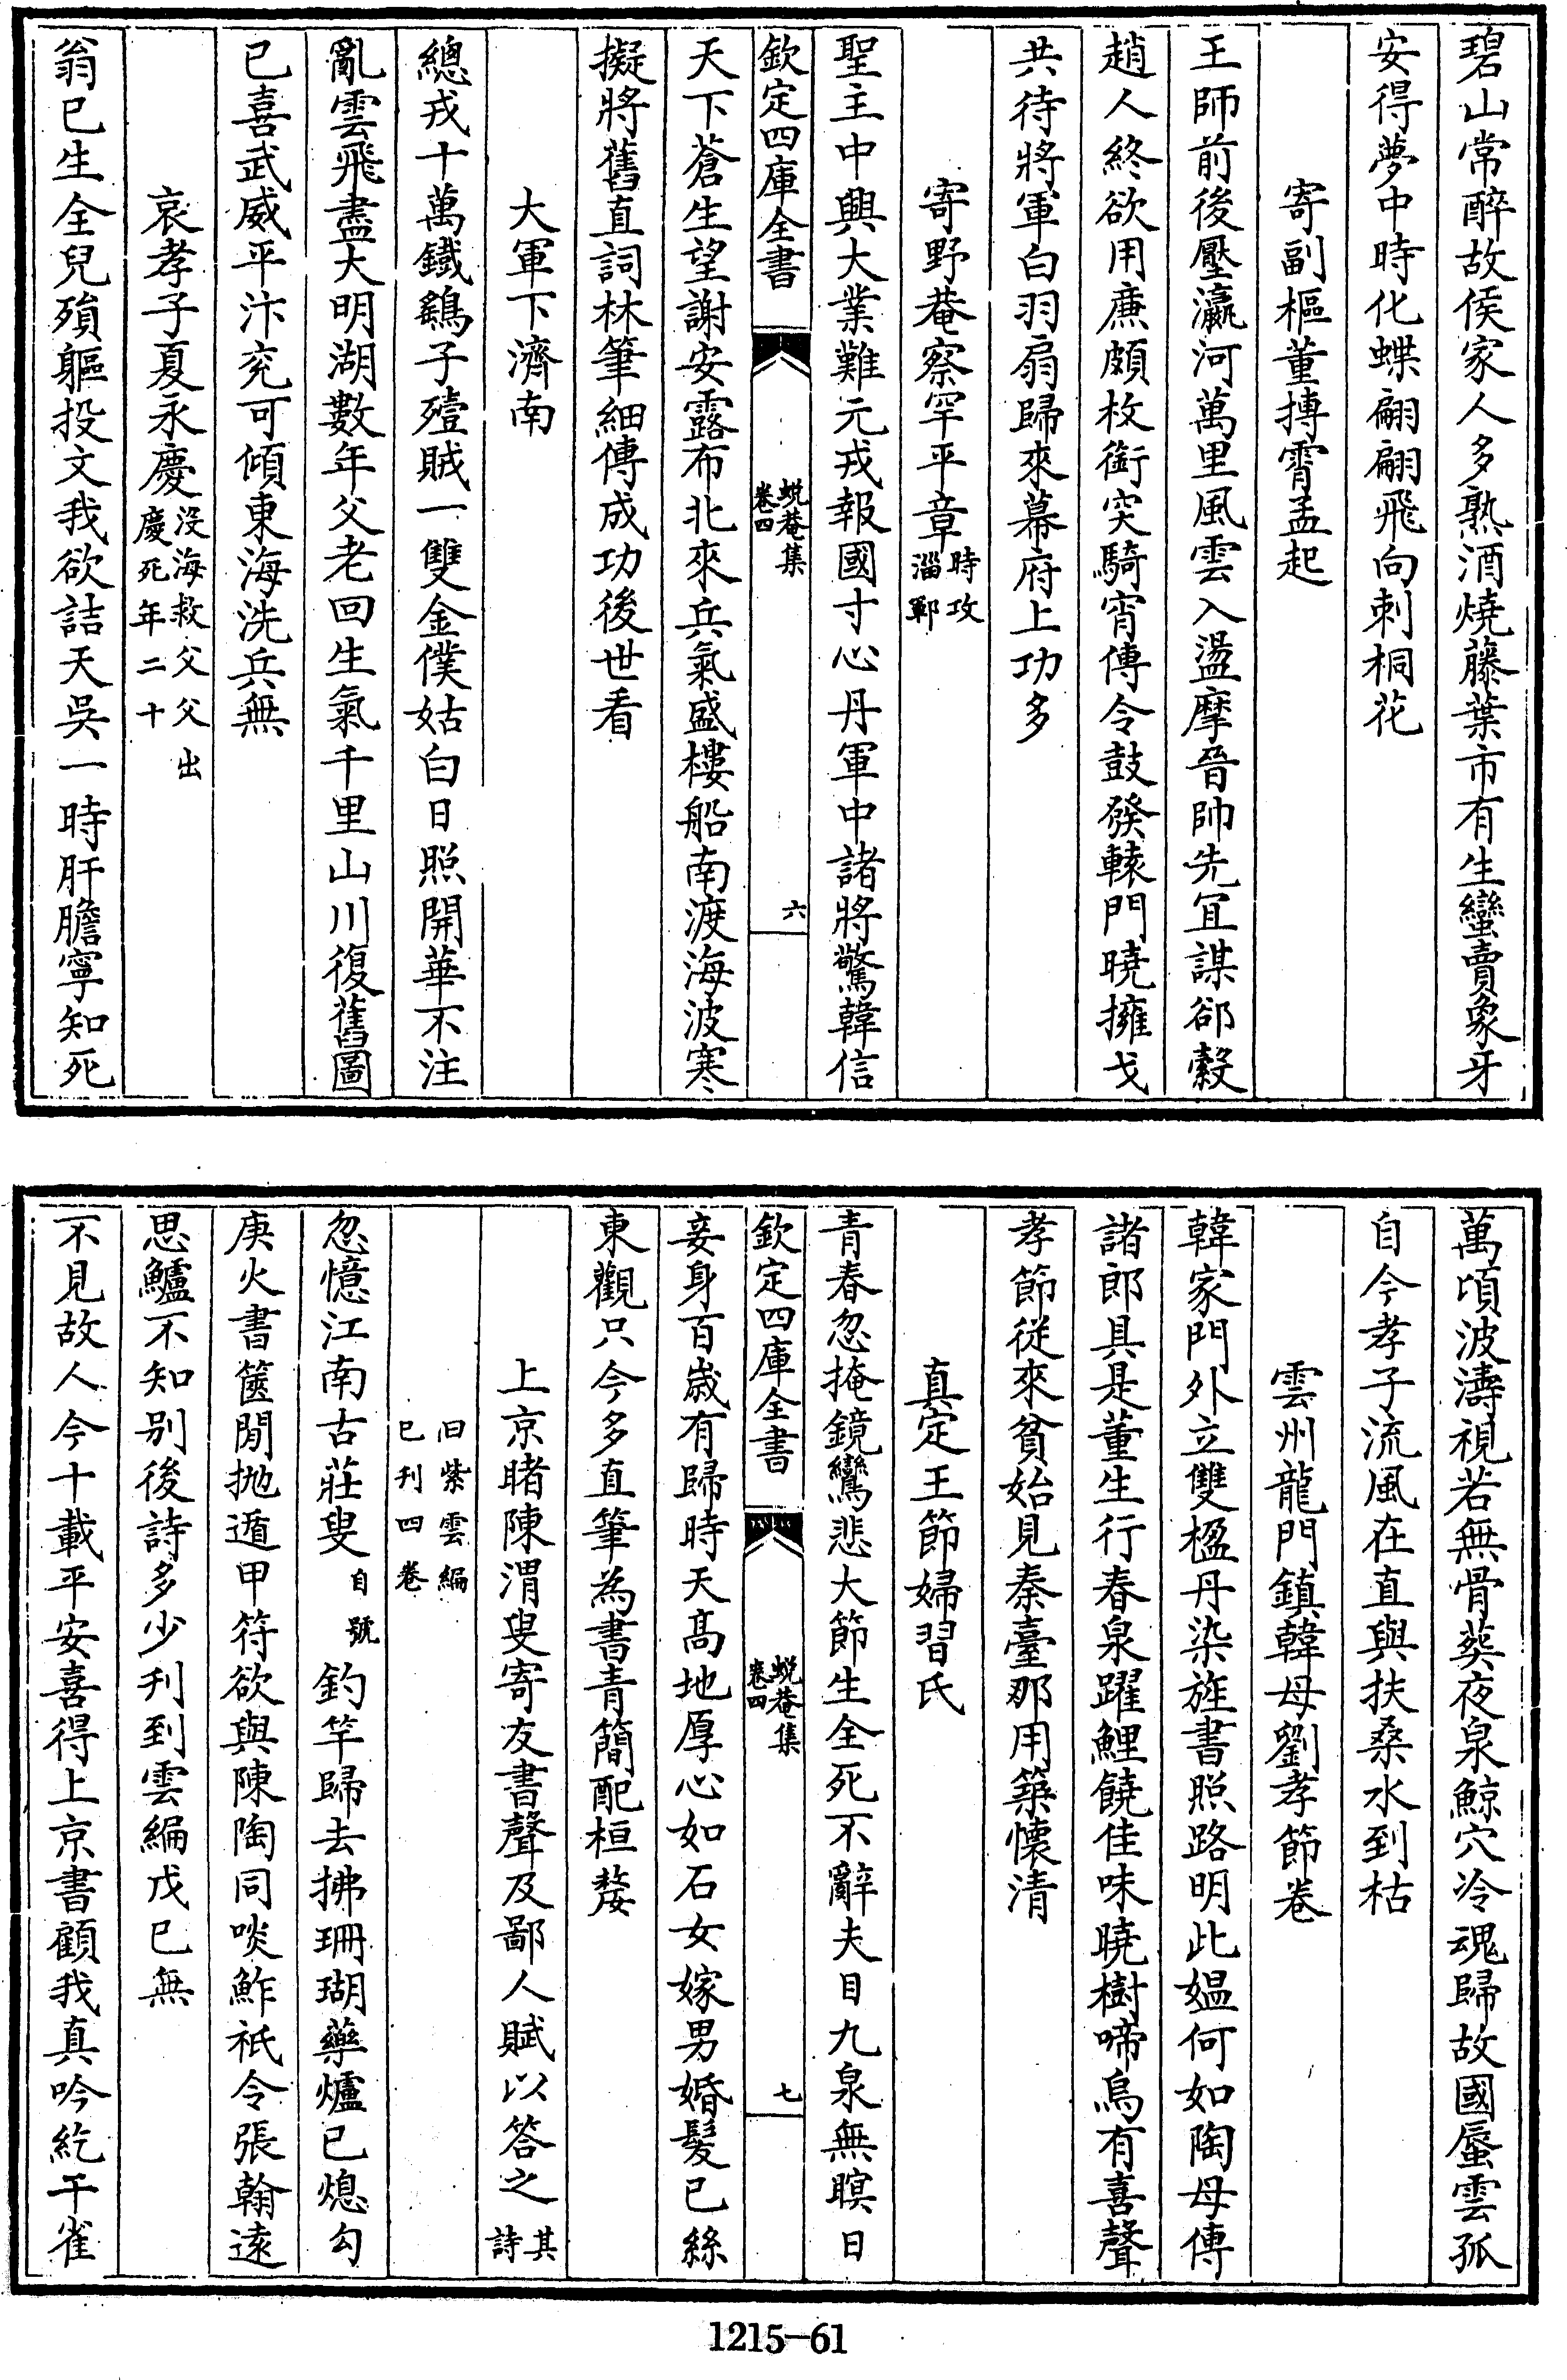 碧山常醉故侯家人多熟酒燒藤葉市有生蠻賣象牙
安得夢中時化蝶翩翩飛向刺桐花
寄副樞董摶霄孟起
王師前後壓瀛河萬里風雲入盪摩晉帥先宜謀郤縠
趙人終欲用廉頗枚銜突騎宵傳令鼓發轅門曉擁戈
共待將軍白羽扇歸來幕府上功多
寄野菴察罕平章時攻淄鄆
聖主中興大業難元戎報國寸心丹軍中諸將驚韓信
欽定四庫全書
蛻菴集
卷四
六
天下蒼生望謝安露布北來兵氣盛樓船南渡海波寒
擬將舊直詞林筆細傳成功後世看
大軍下濟南
總戎十萬鐵鷂子殪賊一雙金僕姑白日照開華不注
亂雲飛盡大明湖數年父老回生氣千里山川復舊圖
已喜武威平汴兖可傾東海洗兵無
哀孝子夏永慶沒海救父父出慶死年二十
翁已生全兒殞軀投文我欲詰天吳一時肝膽寧知死
萬頃波濤視若無骨葬夜泉鯨穴冷魂歸故國蜃雲孤
自今孝子流風在直與扶桑水到枯
雲州龍門鎮韓母劉孝節卷
韓家門外立雙楹丹染旌書照路明此媼何如陶母傳
諸郎具是董生行春泉躍鯉饒佳味曉樹啼烏有喜聲
孝節從來貧始見秦臺那用築懷清
真定王節婦習氏
青春忽掩鏡鸞悲大節生全死不辭夫目九泉無瞑日
欽定四庫全書
蛻菴集
卷四
七
妾身百歲有歸時天高地厚心如石女嫁男婚髮已絲
東觀只今多直筆為書青簡配桓嫠
上京睹陳渭叟寄友書聲及鄙人賦以答之其詩
曰紫雲編已刊四卷
忽憶江南古莊叟自號釣竿歸去拂珊瑚藥爐已熄勾
庚火書篋閒拋遁甲符欲與陳陶同啖鮓祇令張翰遠
思鱸不知別後詩多少刊到雲編戊巳無
不見故人今十載平安喜得上京書顧我真吟紇干雀
1215-61